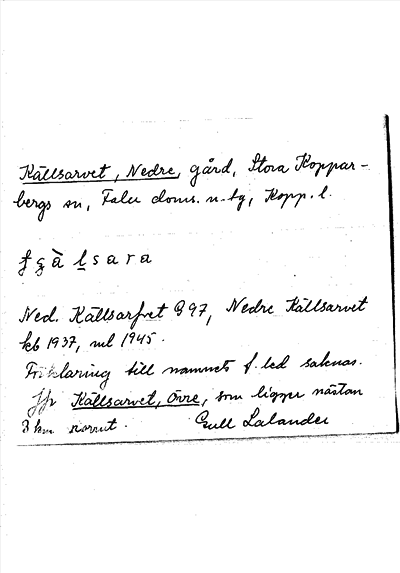 Källsarvet, Nedre, gård, Stora Koppar-
bergs sn, Falu doms. n. tg, Kopp. l.
Ned. Källsarfvet G 97, Nedre Källsarvet
kb 1937, ml 1945.
Förklaring till namnets f. led saknas.
Jfr Källsarvet, Övre, som ligger nästan
3 km norrut. Gull Lalander